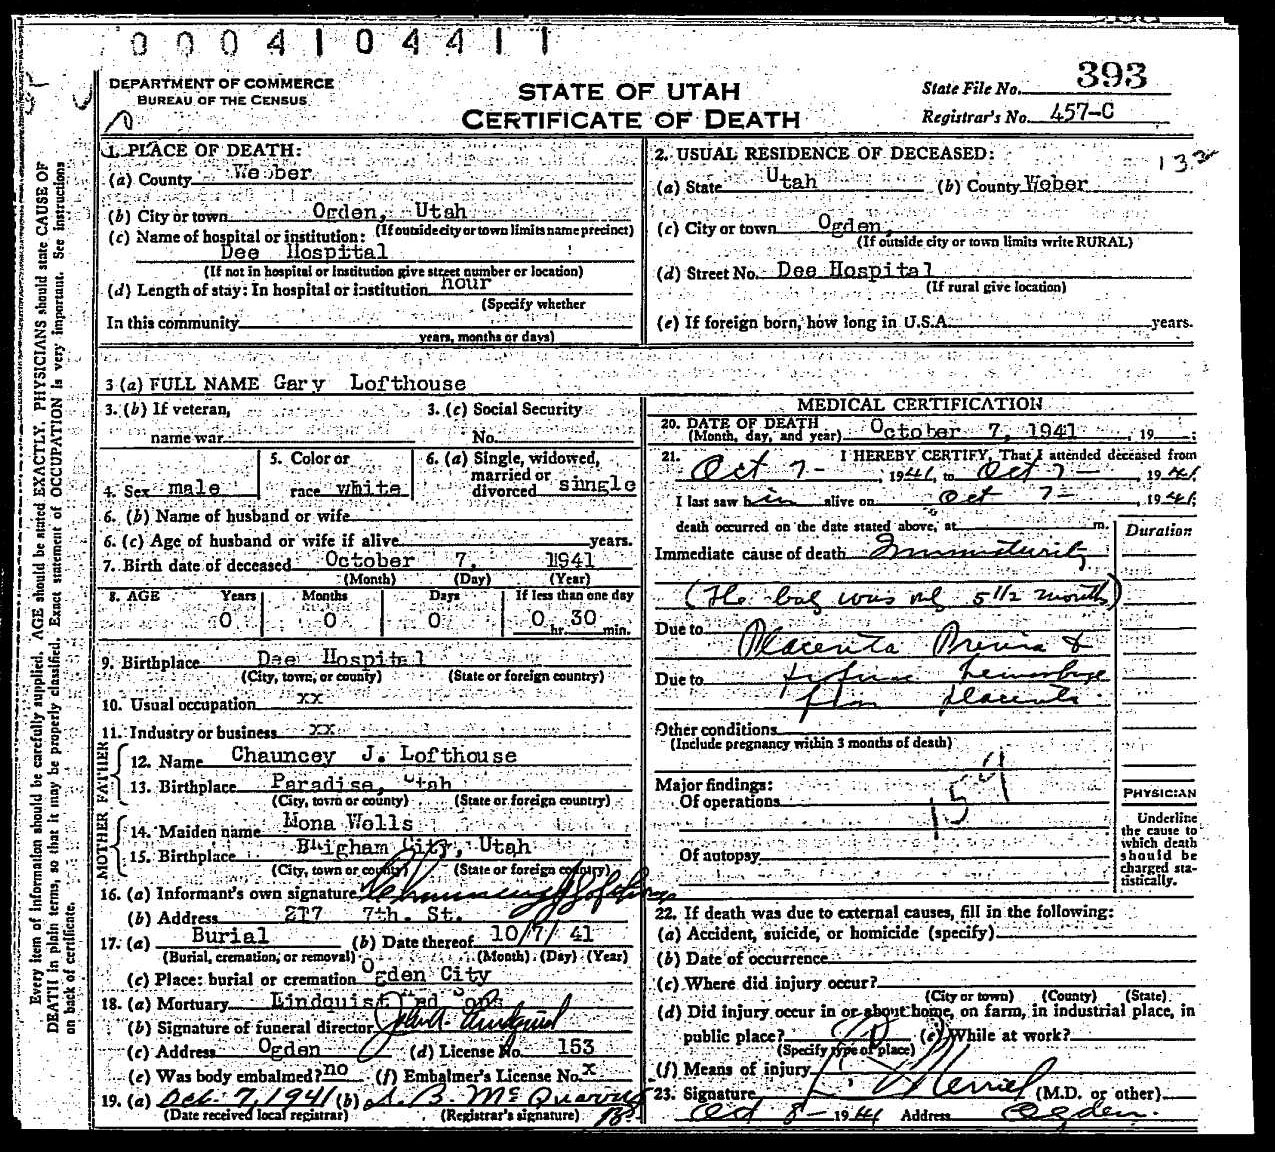 0004104411
DEPARTMENT OF COMMERCE
BUREAU OF THE CENSUS
STATE OF UTAH
CERTIFICATE OF DEATH
State File No. 393
Registrar's No. 457-C
1. PLACE OF DEATH:
(a) County Weober
(b) City or town Ogden, Utah
(If outside city or town limits name precinct)
(c) Name of hospital or institution:
Dee Hospital
(If not in hospital or institution give street number or location)
(d) Length of stay: In hospital or institution hour
(Specify whether
In this community
years, months or days)
2. USUAL RESIDENCE OF DECEASED:
(a) State Utah (b) County Weber
(c) City or town Ogden,
(If outside city or town limits write RURAL)
(d) Street No. Dee Hospital
(If rural give location)
(e) If foreign born, how long in U.S.A. years.
3 (a) FULL NAME Gary Lofthouse
3. (b) If veteran,
name war
3. (c) Social Security
No.
4. Sex male
5. Color or
race white
6. (a) Single, widowed,
married or
divorced single
6. (b) Name of husband or wife
6. (c) Age of husband or wife if alive years.
7. Birth date of deceased October 7, 1941
(Month) (Day) (Year)
8. AGE Years Months Days If less than one day
0 0 0 0 hr. 30 min.
9. Birthplace Dee Hospital
(City, town, or county) (State or foreign country)
10. Usual occupation xx
11. Industry or business xx
FATHER
12. Name Chauncey J. Lofthouse
13. Birthplace Paradise, Utah
(City, town or county) (State or foreign country)
MOTHER
14. Maiden name Mona Wells
15. Birthplace Brigham City, Utah
(City, town or county) (State or foreign country)
16. (a) Informant's own signature Chauncey J Lofthouse
(b) Address 217 7th. St.
17. (a) Burial (b) Date thereof 10/7/41
(Burial, cremation, or removal) (Month) (Day) (Year)
(c) Place: burial or cremation Ogden City
18. (a) Mortuary Lindquist and Sons
(b) Signature of funeral director John A. Lindquist
(c) Address Ogden (d) License No. 153
(e) Was body embalmed? no (f) Embalmer's License No. x
19. (a) Oct. 7, 1941 (b)
(Date received local registrar) (Registrar's signature)
MEDICAL CERTIFICATION
20. DATE OF DEATH
(Month, day, and year) October 7, 1941, 19
21. I HEREBY CERTIFY, That I attended deceased from
Oct 7 - 1941, to Oct 7 - 1941,
I last saw him alive on Oct 7 - 1941,
death occurred on the date stated above, at m.
Duration
Immediate cause of death Immaturity
(The baby was only 5 1/2 months)
Due to Placenta Previa &
Due to hemorrhage
from placenta
Other conditions
(Include pregnancy within 3 months of death)
Major findings:
Of operations
Of autopsy
159
PHYSICIAN
Underline
the cause to
which death
should be
charged sta-
tistically.
22. If death was due to external causes, fill in the following:
(a) Accident, suicide, or homicide (specify)
(b) Date of occurrence
(c) Where did injury occur?
(City or town) (County) (State)
(d) Did injury occur in or about home, on farm, in industrial place, in
public place? (e) While at work?
(Specify type of place)
(f) Means of injury
23. Signature Merrill (M.D. or other)
Oct 8 - 1941 Address Ogden.
Every item of information should be carefully supplied. AGE should be stated EXACTLY. PHYSICIANS should state CAUSE OF
DEATH in plain terms, so that it may be properly classified. Exact statement of OCCUPATION is very important. See instructions
on back of certificate.